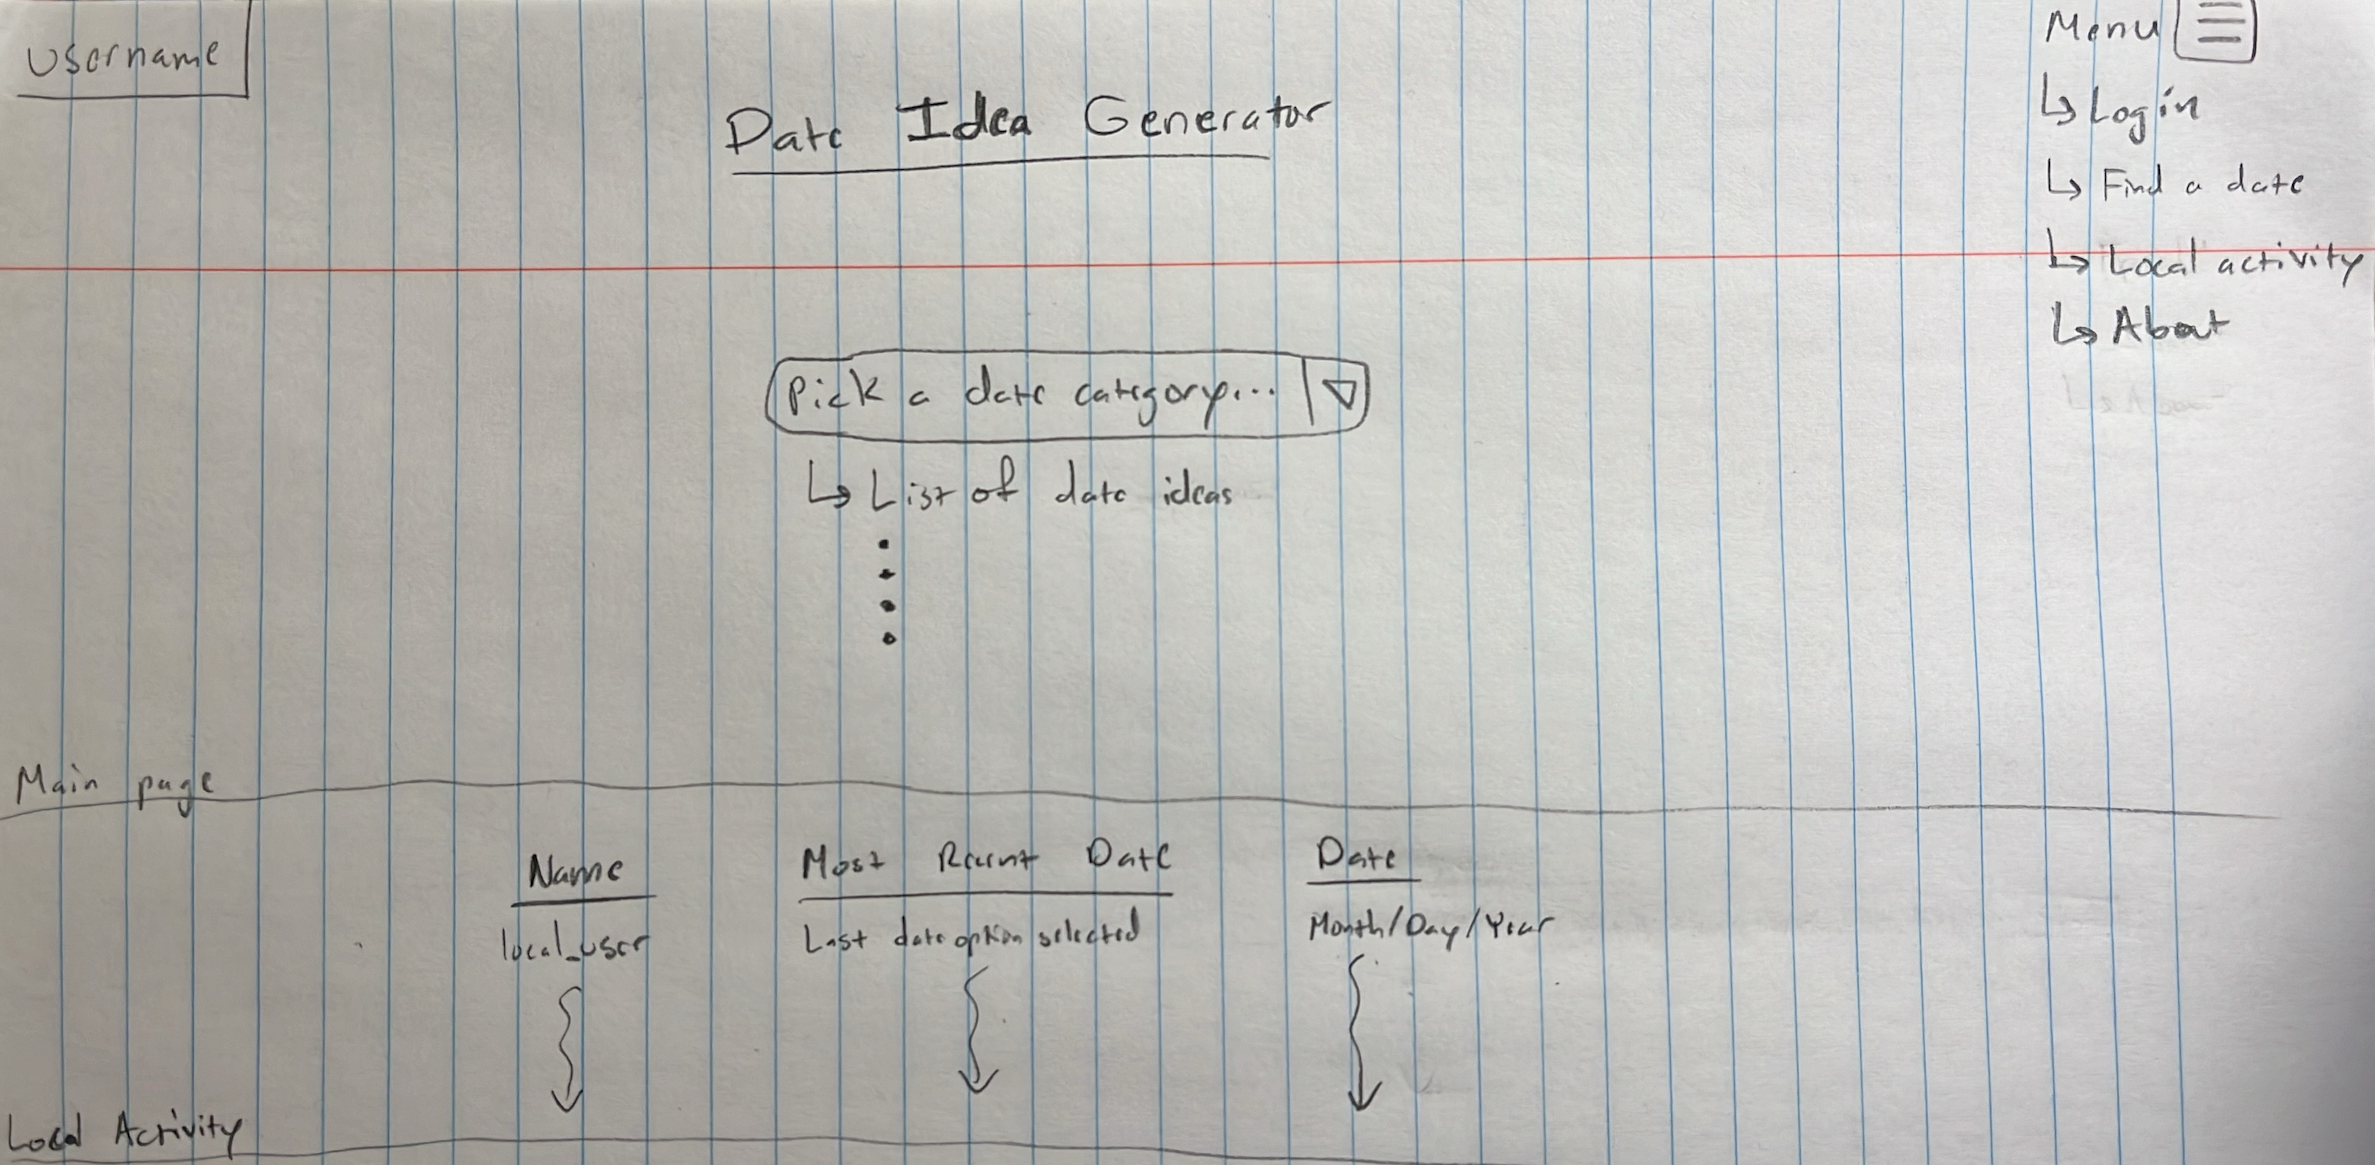 Username
Menu
Login
Find a date
Local activity
About
Date Idea Generator
Pick a date category...
List of date ideas
Main page
Name
Most Recent Date
Date
local_user
Last date option selected
Month/Day/Year
Local Activity